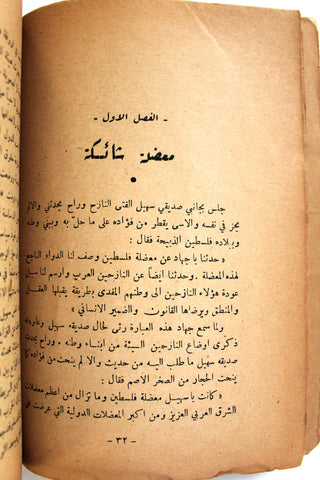 - الفصل الاول -
معضلة شائكة
•
جلس بجانبي صديقي سهيل الفتى النازح وراح يحدثني والالم
يحز في نفسه والاسى يقطر من فؤاده على ما حل به وببني وطنه
وبلاده فلسطين الذبيحة فقال :
« حدثنا يا جهاد عن معضلة فلسطين وصف لنا الدواء الناجع
لهذه المعضلة . وحدثنا ايضاً عن النازحين العرب وارسم لنا سبل
عودة هؤلاء النازحين الى وطنهم المفدى بطريقة يقبلها العقل
والمنطق ويرضاها القانون والضمير الانساني »
ولما سمع جهاد هذه العبارة رثى لحال صديقه سهيل وعاودته
ذكرى اوضاع النازحين السيئة من ابناء وطنه « وراح يحدث
صديقه سهيل ما طلب اليه من حديث والالم ينحت من فؤاده كما
ينحت الحجار من الصخر الاصم فقال :
« كانت يا سهيل معضلة فلسطين وما تزال من اعظم معضلات
الشرق العربي العزيز ومن اكبر المعضلات الدولية التي عرضت على
- ٣٢ -